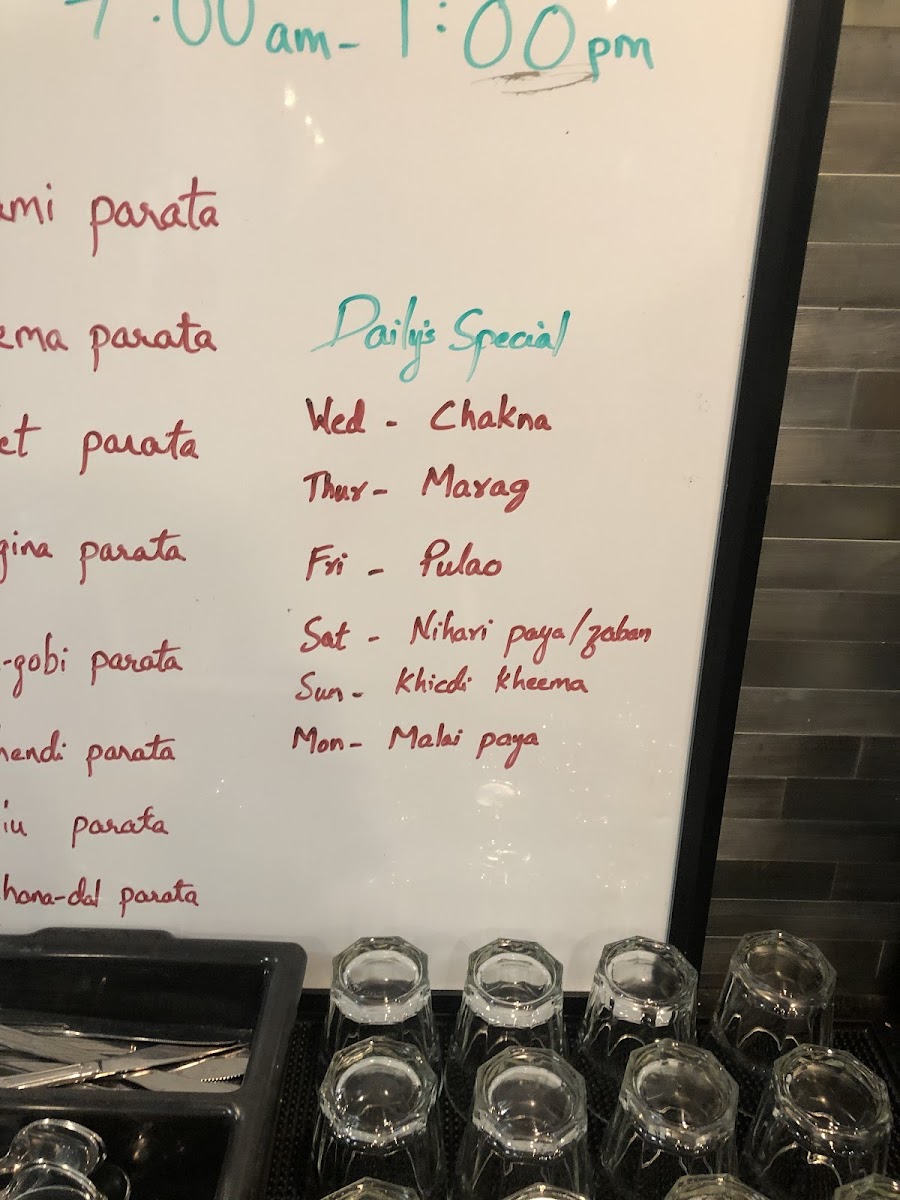 7:00am - 1:00pm
parata
parata
parata
parata
-gobi parata
parata
parata
hana-dal parata
Daily's Special
Wed - Chakna
Thur - Marag
Fri - Pulao
Sat - Nihari paya/zaban
Sun - Khicdi kheema
Mon - Malai paya